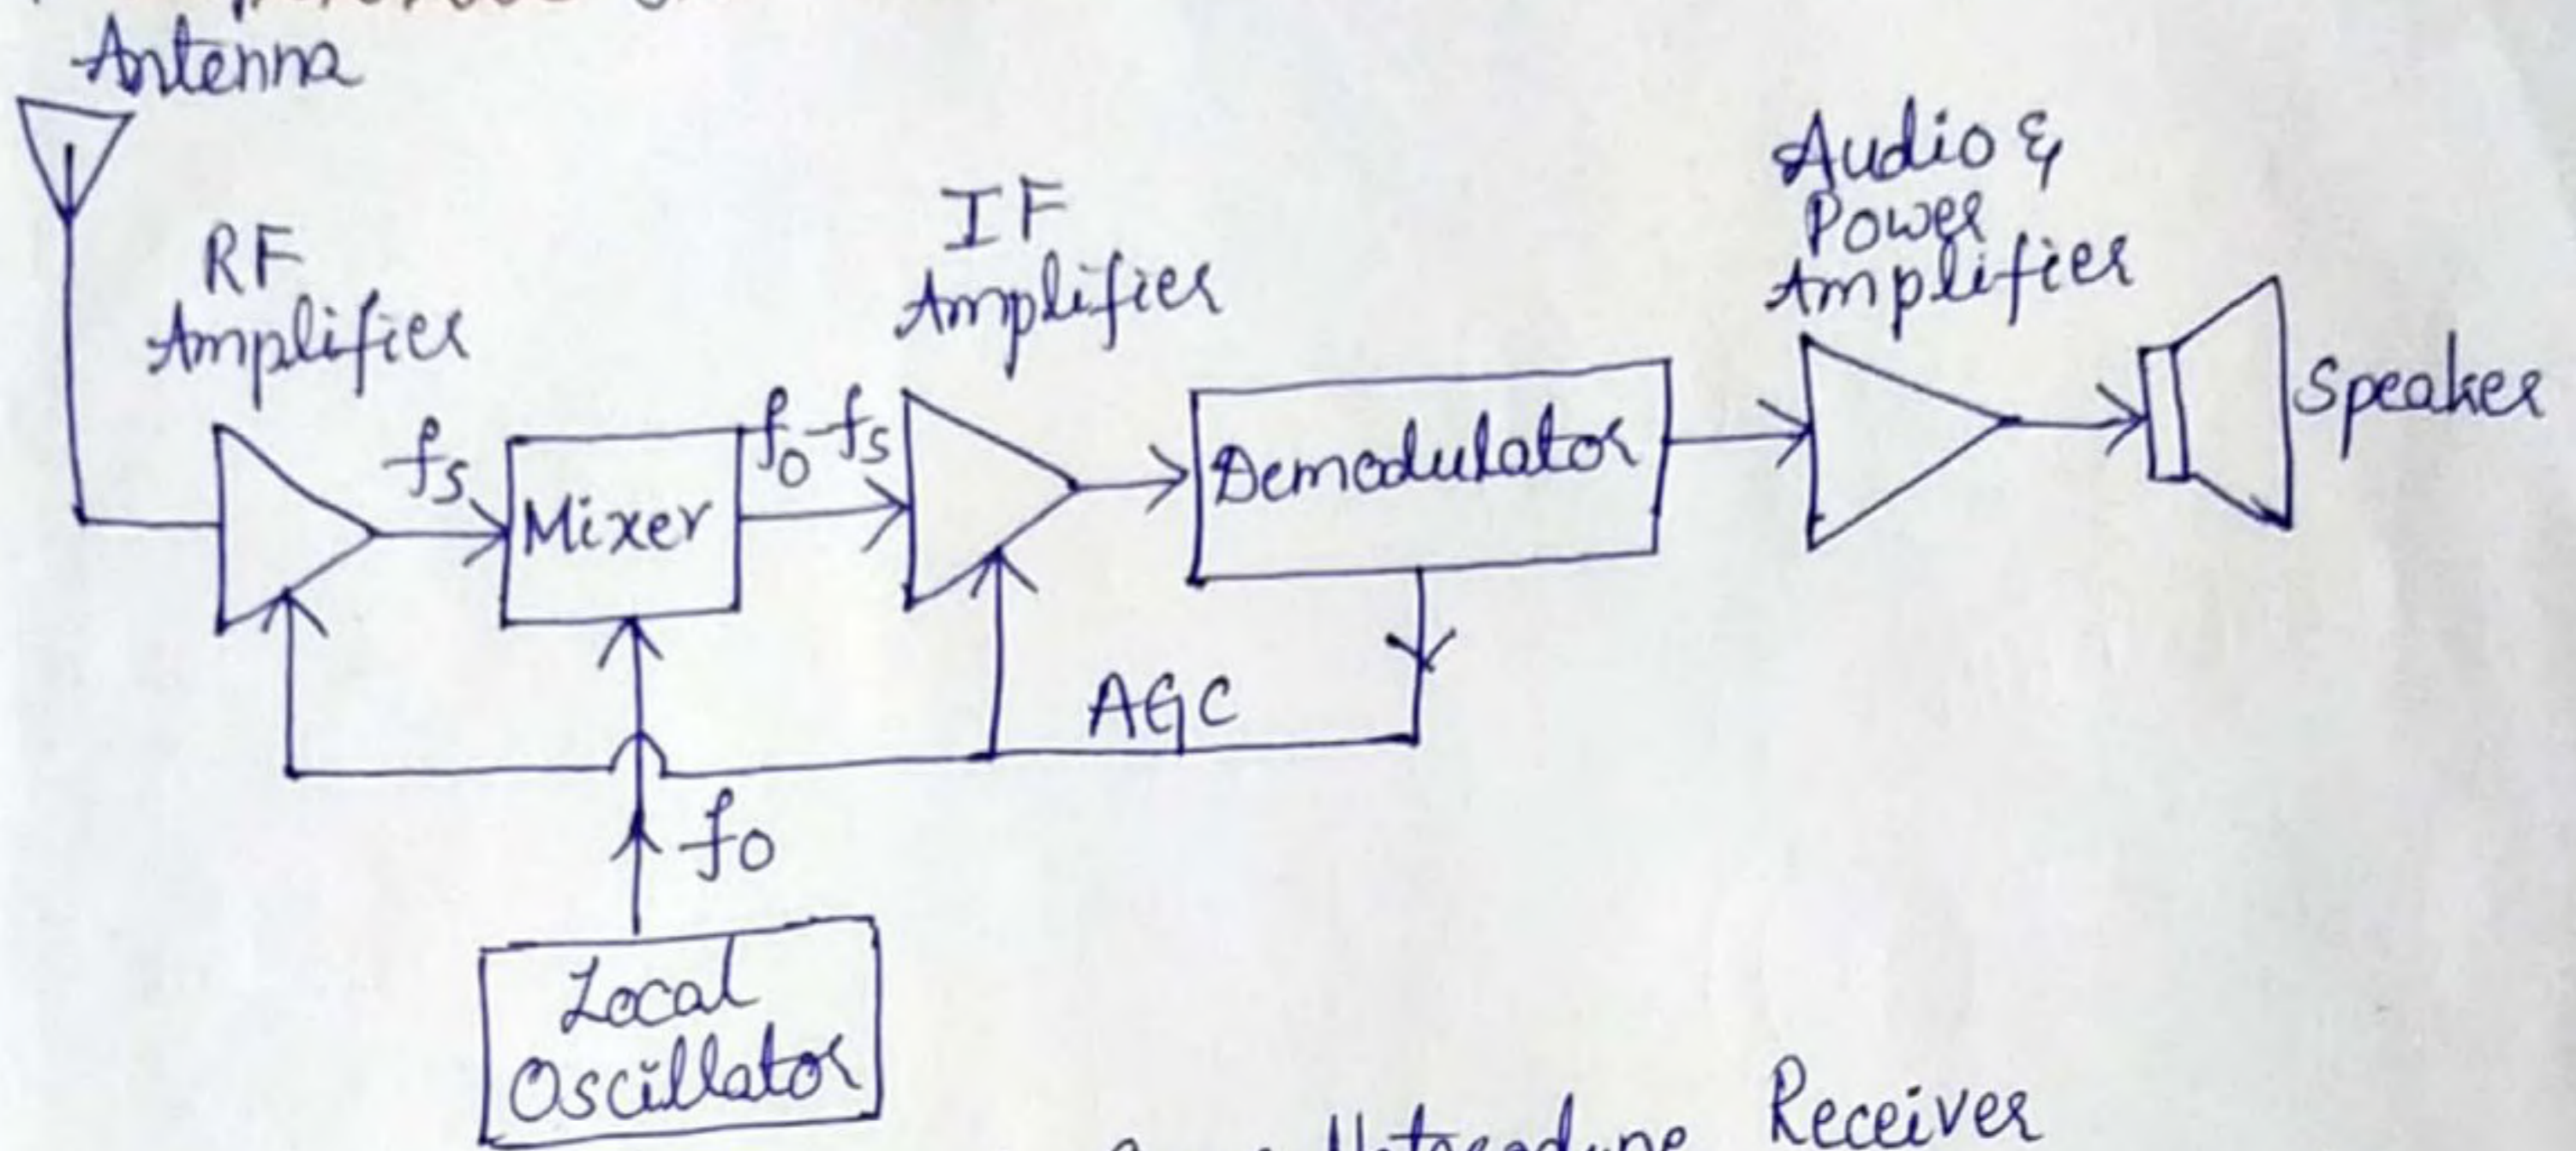 Antenna
RF
Amplifier
fs
Mixer
fo-fs
IF
Amplifier
Demodulator
Audio &
Power
Amplifier
Speaker
AGC
fo
Local
Oscillator
Receiver